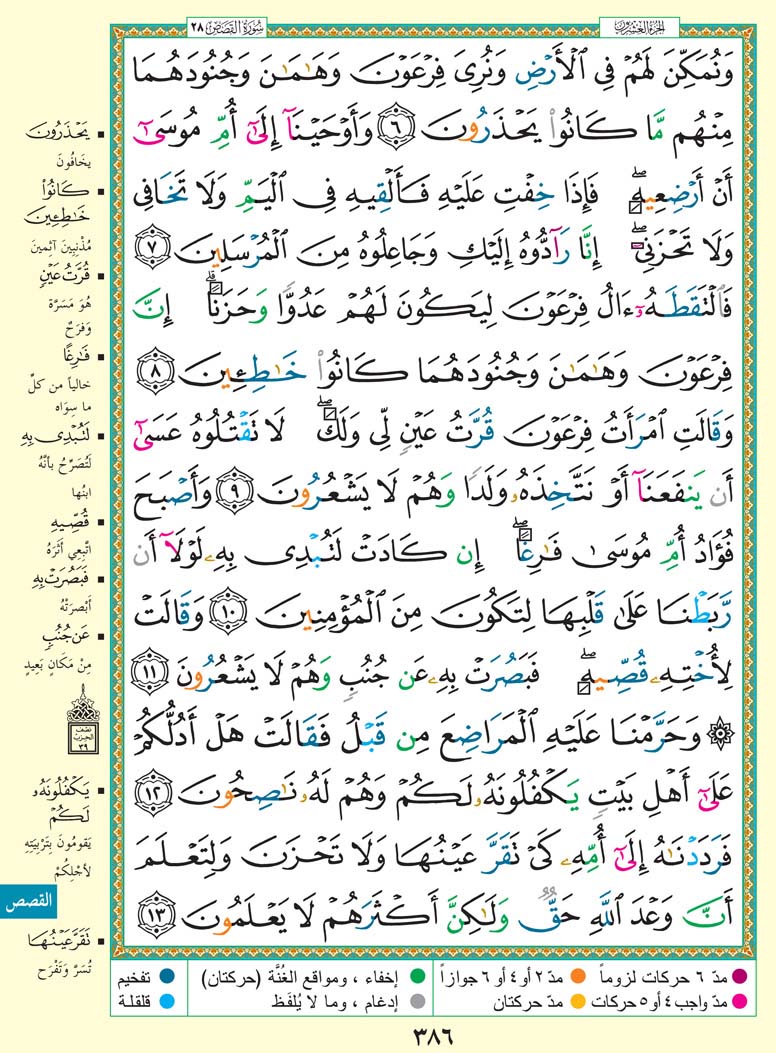 سُورَةُ القَصَصِ ٢٨
الجُزءُ العِشْرُونَ
وَنُمَكِّنَ لَهُمْ فِي ٱلْأَرْضِ وَنُرِيَ فِرْعَوْنَ وَهَٰمَٰنَ وَجُنُودَهُمَا
مِنْهُم مَّا كَانُوا۟ يَحْذَرُونَ ٦ وَأَوْحَيْنَآ إِلَىٰٓ أُمِّ مُوسَىٰٓ
أَنْ أَرْضِعِيهِ ۖ فَإِذَا خِفْتِ عَلَيْهِ فَأَلْقِيهِ فِي ٱلْيَمِّ وَلَا تَخَافِي
وَلَا تَحْزَنِيٓ ۖ إِنَّا رَآدُّوهُ إِلَيْكِ وَجَاعِلُوهُ مِنَ ٱلْمُرْسَلِينَ ٧
فَٱلْتَقَطَهُۥٓ ءَالُ فِرْعَوْنَ لِيَكُونَ لَهُمْ عَدُوًّا وَحَزَنًا ۗ إِنَّ
فِرْعَوْنَ وَهَٰمَٰنَ وَجُنُودَهُمَا كَانُوا۟ خَٰطِـِٔينَ ٨
وَقَالَتِ ٱمْرَأَتُ فِرْعَوْنَ قُرَّتُ عَيْنٍ لِّي وَلَكَ ۖ لَا تَقْتُلُوهُ عَسَىٰٓ
أَن يَنفَعَنَآ أَوْ نَتَّخِذَهُۥ وَلَدًا وَهُمْ لَا يَشْعُرُونَ ٩ وَأَصْبَحَ
فُؤَادُ أُمِّ مُوسَىٰ فَٰرِغًا ۖ إِن كَادَتْ لَتُبْدِي بِهِۦ لَوْلَآ أَن
رَّبَطْنَا عَلَىٰ قَلْبِهَا لِتَكُونَ مِنَ ٱلْمُؤْمِنِينَ ١٠ وَقَالَتْ
لِأُخْتِهِۦ قُصِّيهِ ۖ فَبَصُرَتْ بِهِۦ عَن جُنُبٍ وَهُمْ لَا يَشْعُرُونَ ١١
۞ وَحَرَّمْنَا عَلَيْهِ ٱلْمَرَاضِعَ مِن قَبْلُ فَقَالَتْ هَلْ أَدُلُّكُمْ
عَلَىٰٓ أَهْلِ بَيْتٍ يَكْفُلُونَهُۥ لَكُمْ وَهُمْ لَهُۥ نَٰصِحُونَ ١٢
فَرَدَدْنَٰهُ إِلَىٰٓ أُمِّهِۦ كَيْ تَقَرَّ عَيْنُهَا وَلَا تَحْزَنَ وَلِتَعْلَمَ
أَنَّ وَعْدَ ٱللَّهِ حَقٌّ وَلَٰكِنَّ أَكْثَرَهُمْ لَا يَعْلَمُونَ ١٣
يَحْذَرُونَ
يخافُونَ
كَانُوا۟
خَٰطِـِٔينَ
مُذْنِبِينَ آثِمِينَ
قُرَّتُ عَيْنٍ
هُوَ مَسَرَّة
وَفرَحٌ
فَٰرِغًا
خالياً من كلِّ
ما سِوَاه
لَتُبْدِي بِهِ
لَتُصَرِّحُ بأنَّهُ
ابنُها
قُصِّيهِ
اتَّبِعِي أَثَرَهُ
فَبَصُرَتْ بِهِ
أَبْصَرَتْهُ
عَن جُنُبٍ
مِنْ مَكَانٍ بَعِيدٍ
نصف
الحزب
٣٩
يَكْفُلُونَهُۥ
لَكُمْ
يَقومُونَ بِتَرْبِيَتِهِ
لأجْلِكُمْ
القصص
تَقَرَّ عَيْنُهَا
تُسَرَّ وَتَفْرَح
مدّ ٦ حركات لزوماً
مدّ ٢ أو ٤ أو ٦ جوازاً
إخفاء ، ومواقع الغُنَّة (حركتان)
تفخيم
مدّ واجب ٤ أو ٥ حركات
مدّ حركتان
إدغام ، وما لا يُلفَظ
قلقلة
٣٨٦